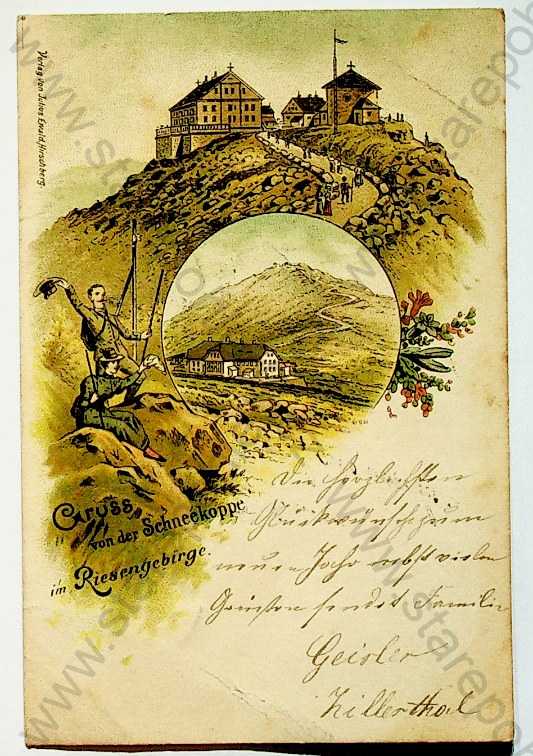 Verlag von Julius Ewald, Hirschberg
Gruss
von der Schneekoppe
im Riesengebirge.
Die herzlichsten
Glückwünsche zum
neuen Jahr nebst vielen
Grüssen sendet Familie
Geisler
Zillerthal
www.starepohledy
www.starepohledy